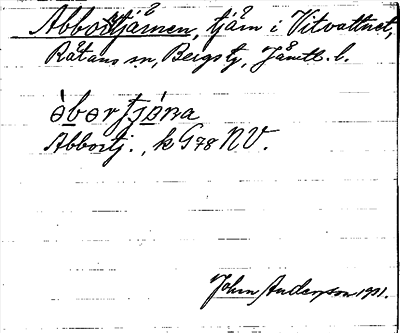 Abbortjärnen, tjärn i Vitvattnet,
Rätans sn, Bergs tg, Jämtl. l.
àbortjɔ́na
Abbortj., k G 78 NV.
John Anderson 1931.